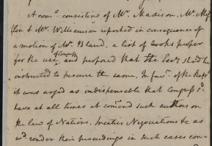 A com̃e consisting of Mr. Madison, Mr. Mif-
flin & Mr. Williamson reported in consequence of
a motion of Mr. Bland, a list of books proper
for the use of Congress, and proposed that the Secy. should be
instructed to procure the same. In favr. of the Rept.
it was urged as indispensable that Congress sd.
have at all times at comand such authors on
the law of Nations, treaties Negociations &c as
wd. render their proceedings in such cases con-